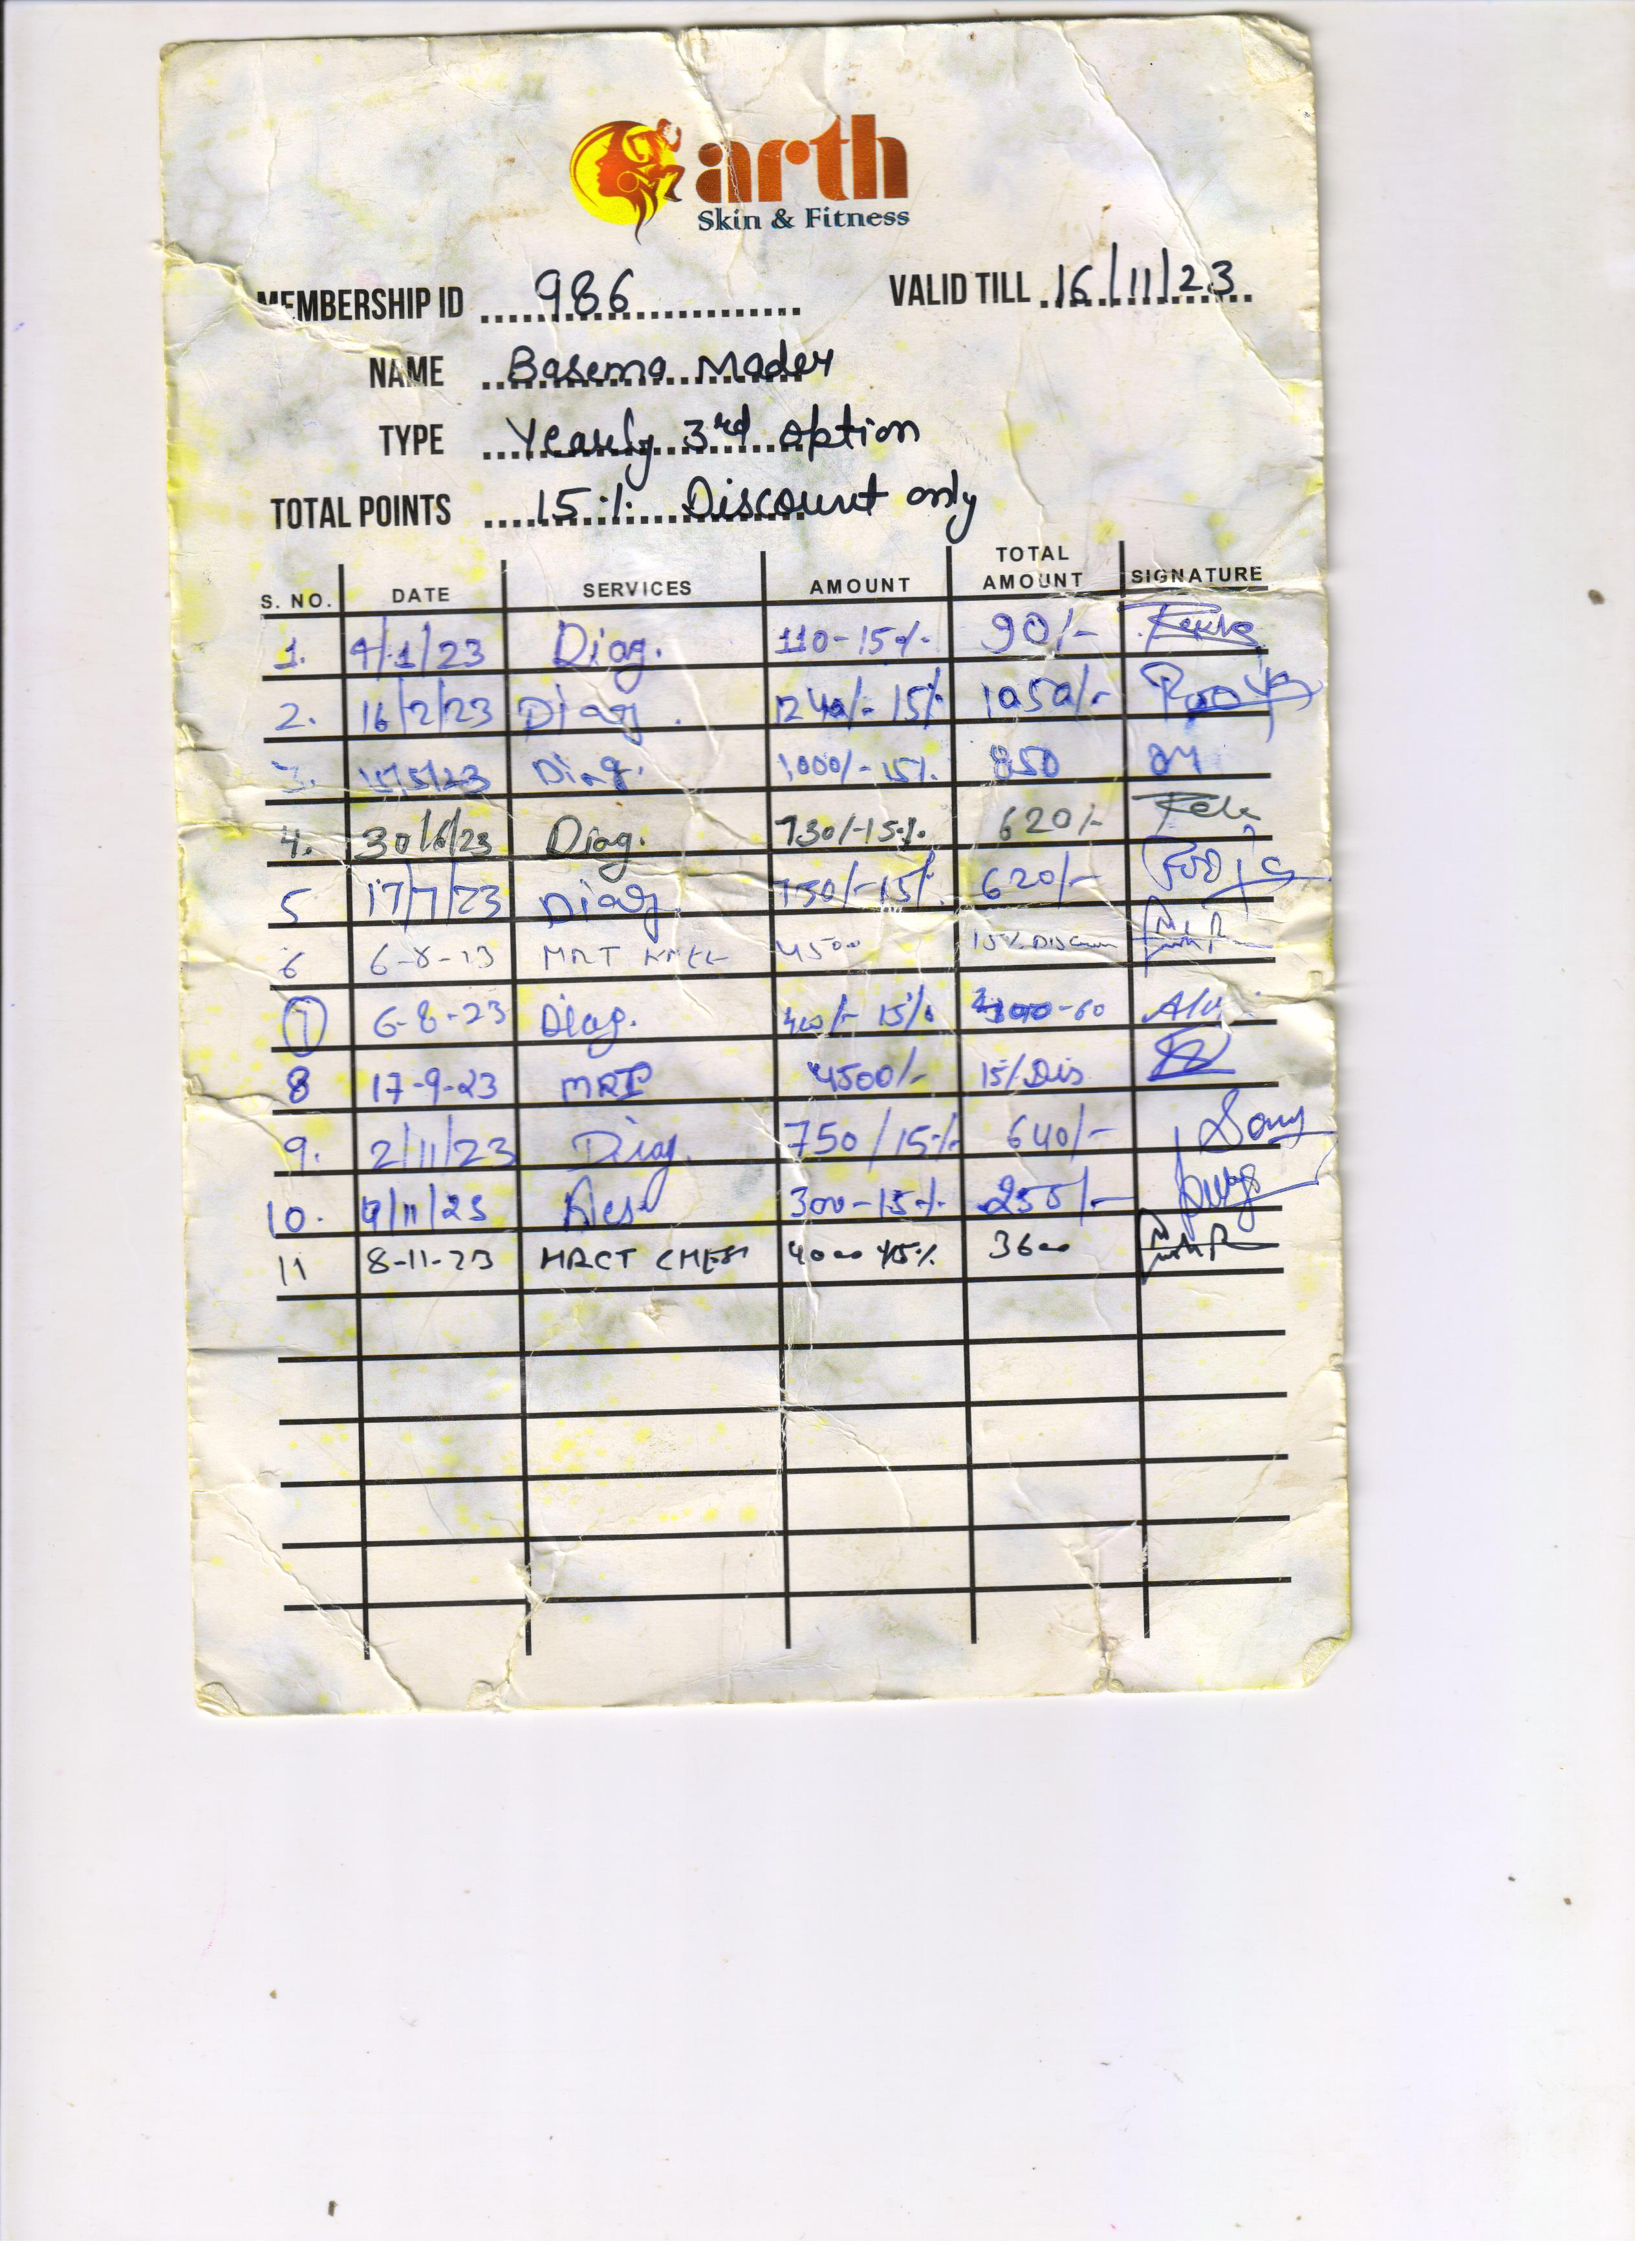 arth
Skin & Fitness
MEMBERSHIP ID 986 VALID TILL 16/11/23
NAME Basema Mader
TYPE Yearly 3rd option
TOTAL POINTS 15% Discount only
S. NO. DATE SERVICES AMOUNT TOTAL AMOUNT SIGNATURE
1. 9/1/23 Diag. 110-15% 90/-
2. 16/2/23 Diag. 1240/- 15% 1050/- Pooja
3. 15/5/23 Diag. 1000/- 15% 850
4. 30/6/23 Diag. 730/-15% 620/-
5 17/7/23 Diag. 730/-15% 620/- Pooja
6 6-8-23 4500 15% Discoun
7 6-8-23 Diag. 400/- 15% -60
8 17-9-23 MRI 4500/- 15/Dis
9. 2/11/23 Diag. 750/15% 640/- Sony
10. 11/23 300-15% 255/-
11 8-11-23 HRCT CHEST 4000 15% 3600